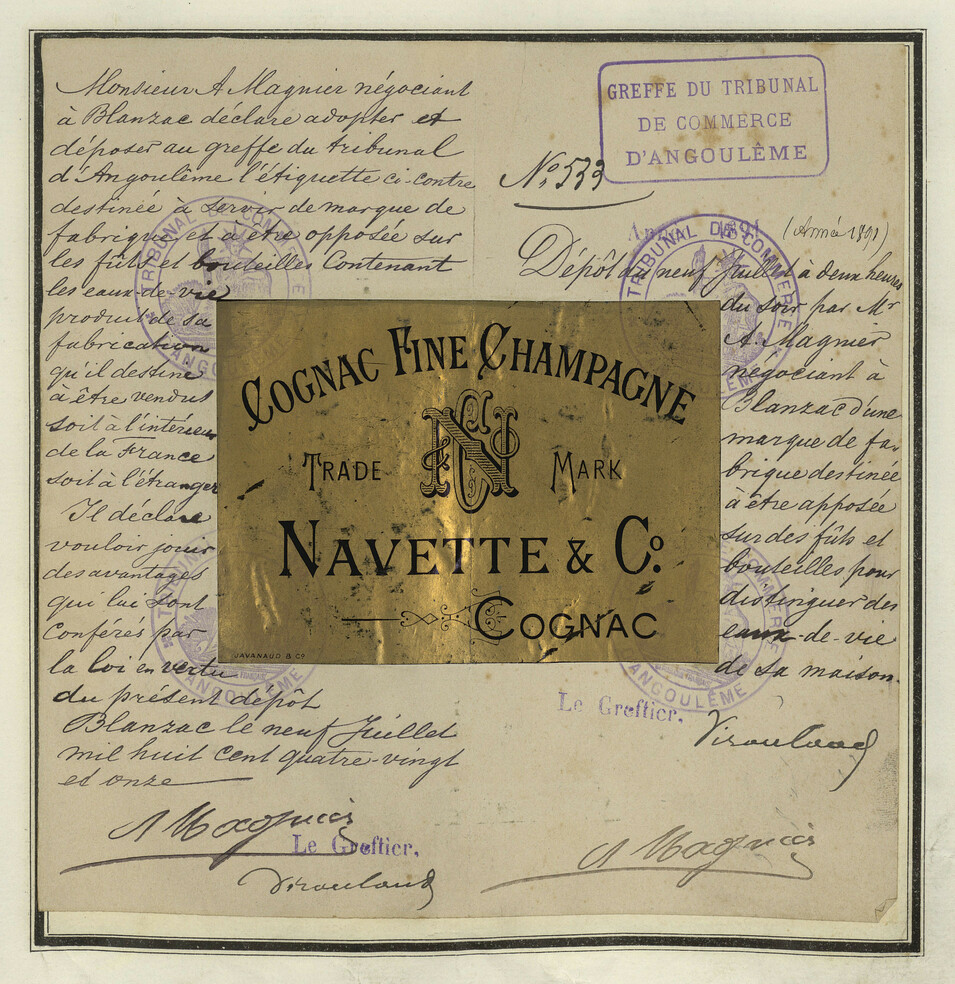 Monsieur A Magnier négociant
à Blanzac déclare adopter et
déposer au greffe du tribunal
d'Angoulême l'étiquette ci-contre
destinée à servir de marque de
fabrique et à être opposée sur
les fûts et bouteilles contenant
les eaux-de-vie
produit de sa
fabrication
qu'il destine
à être vendus
soit à l'intérieur
de la France
soit à l'étranger
Il déclare
vouloir jouir
des avantages
qui lui sont
conférés par
la loi en vertu
du présent dépôt
Blanzac le neuf Juillet
mil huit cent quatre-vingt
et onze
A Magnier
Le Greffier,
GREFFE DU TRIBUNAL
DE COMMERCE
D'ANGOULÊME
No 533
(Année 1891)
Dépôt du neuf Juillet à deux heures
du soir par Mr
A. Magnier
négociant à
Blanzac d'une
marque de fa-
brique destinée
à être apposée
sur des fûts et
bouteilles pour
distinguer des
eaux-de-vie
de sa maison.
Le Greffier,
A Magnier
COGNAC FINE CHAMPAGNE
TRADE MARK
NAVETTE & Co.
COGNAC
JAVANAUD & Co
TRIBUNAL DE COMMERCE
D'ANGOULÊME
TRIBUNAL DE COMMERCE
ANGOULÊME